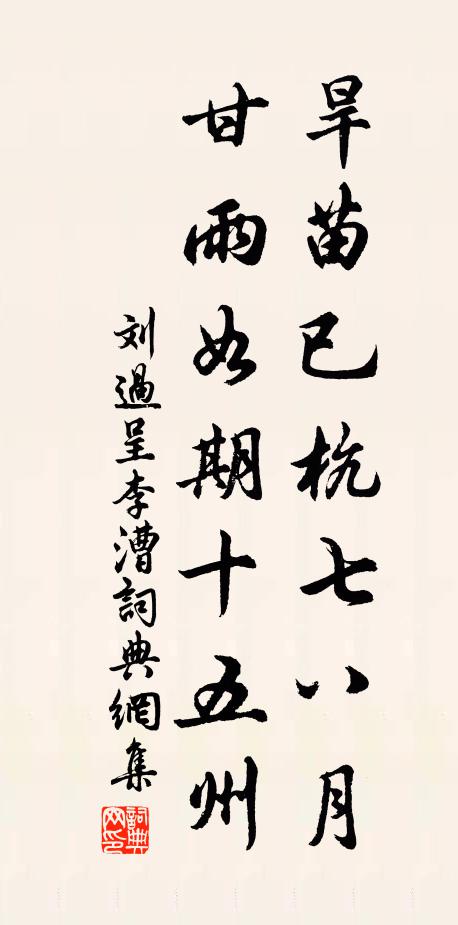 旱苗已杭七八月
甘雨如期十五州
刘過呈李漕詞典網集
詞典網印